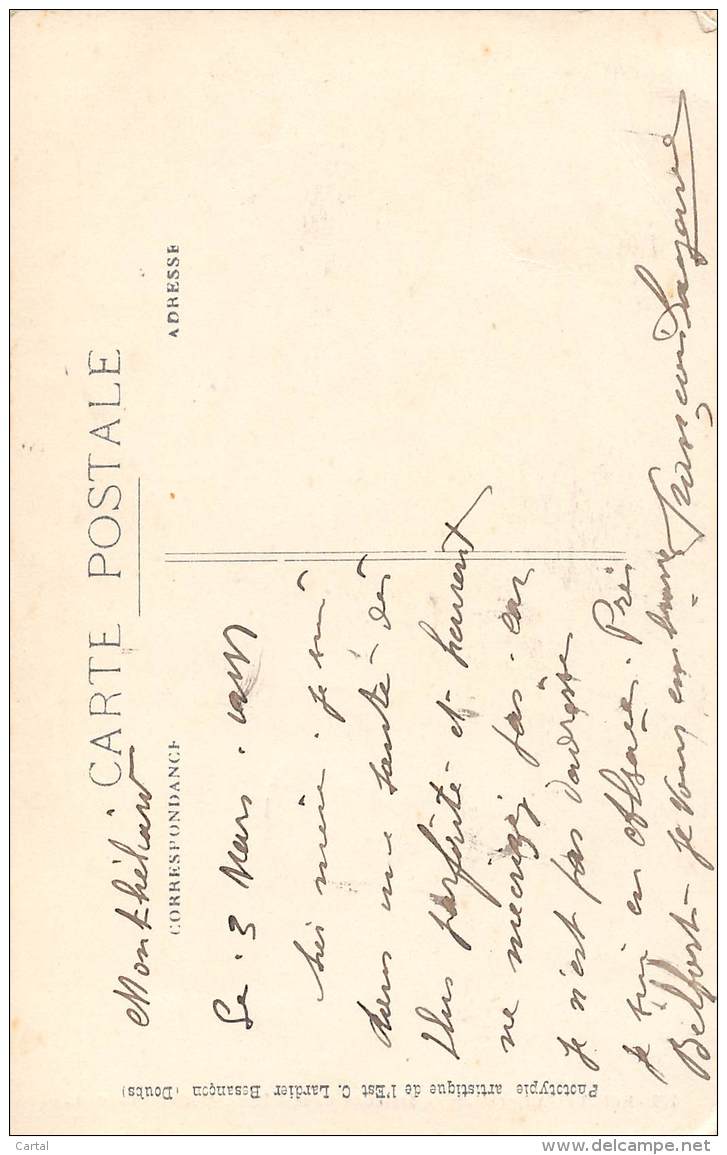 CARTE POSTALE
CORRESPONDANCE
ADRESSE
Montbéliard
Le 3 Mars
mère. je suis
dans une santé des
plus parfaite et heureux
ne mécrivez pas. car
je n'est pas d'adresse
je suis en Alsace. Près
Belfort je vous embrasse
François
Phototypie artistique de l'Est C. Lardier Besançon (Doubs)
Cartal
delcampe.net